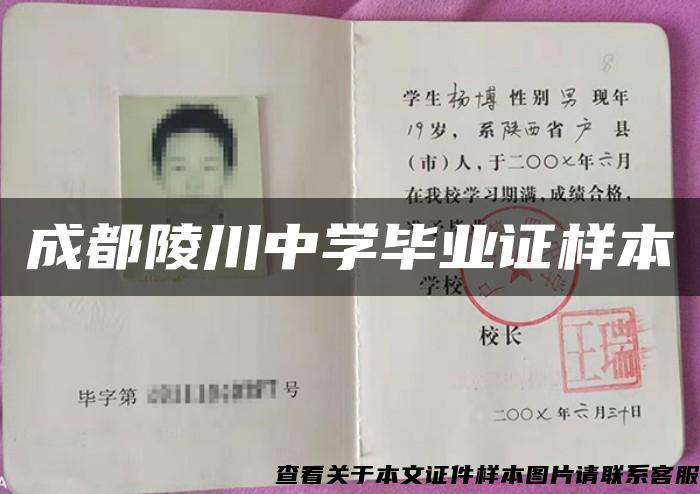 8
学生杨博性别男现年
19岁，系陕西省户县
（市）人，于二〇〇七年六月
在我校学习期满，成绩合格，
成都陵川中学毕业证样本
学校
校长
毕字第 号
二〇〇七年六月三十日
查看关于本文证件样本图片请联系客服